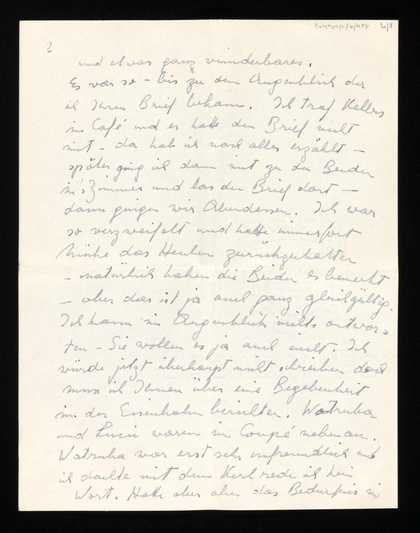 2
und etwas ganz wunderbares.
Es war so – bis zu dem Augenblick da
ich Ihren Brief bekam. Ich traf Kellers
im Café und er hatte den Brief nicht
mit – da hab ich noch alles erzählt –
später ging ich dann mit zu den Beiden
in's Zimmer und las den Brief dort –
dann gingen wir Abendessen. Ich war
so verzweifelt und hatte immerfort
Mühe das Heulen zurückzuhalten
– natürlich haben die Beiden es bemerkt
– aber das ist ja auch ganz gleichgültig.
Ich kann im Augenblick nichts antwor-
ten – Sie wollen es ja auch nicht. Ich
würde jetzt überhaupt nicht schreiben doch
muss ich Ihnen über eine Begebenheit
in der Eisenbahn berichten. Wotruba
und Luccie waren im Coupé nebenan.
Wotruba war erst sehr unfreundlich und
ich dachte mit dem Kerl rede ich kein
Wort. Hatte aber aber das Bedürfnis in